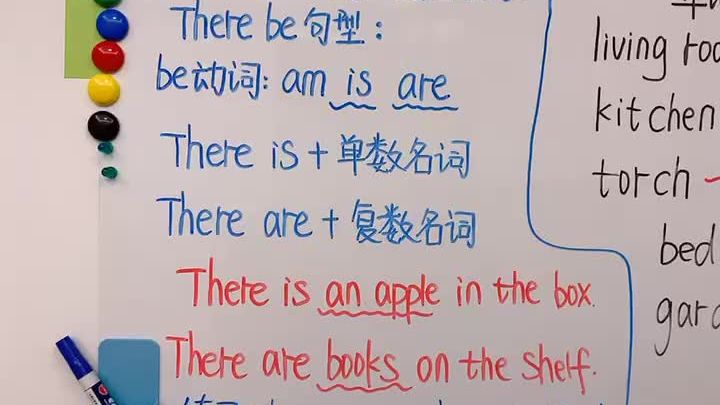 There be句型:
be动词: am is are
There is + 单数名词
There are + 复数名词
There is an apple in the box.
There are books on the shelf.
living
kitchen
torch
bed